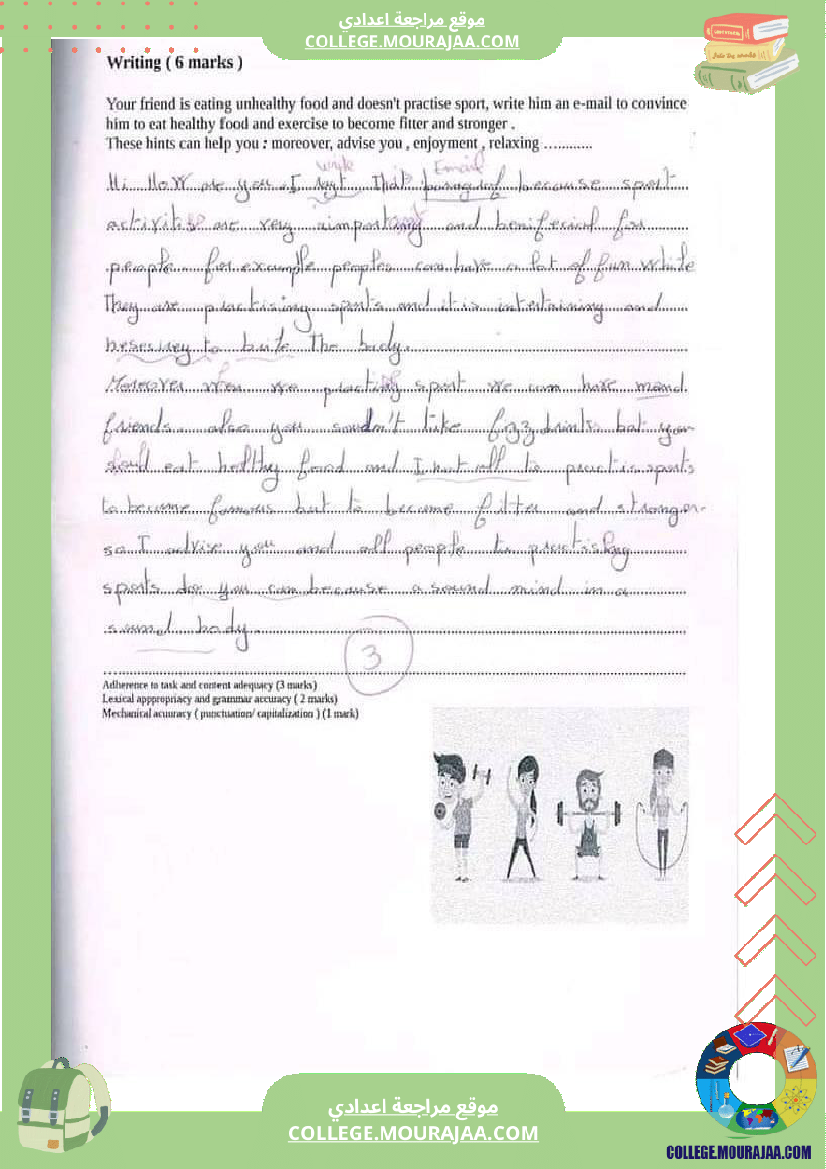 موقع مراجعة اعدادي
COLLEGE.MOURAJAA.COM
Writing ( 6 marks )
Your friend is eating unhealthy food and doesn't practise sport, write him an e-mail to convince
him to eat healthy food and exercise to become fitter and stronger .
These hints can help you : moreover, advise you , enjoyment , relaxing ............
write Email
Hi. How are you. I that because sport
activities are very important and benificial for
people for example peoples can have a lot of fun while
They are practising sports and it is intertaining and
to the body.
Moreover when we practise sport we can have
friends. also you like fizzy drinks but you
should eat healthy food and I not all to practis sports
to become famous but to become fitter and stronger.
so I advise you and all people to practising
sports you can because a sound mind in a
sound body.
3
Adherence to task and content adequacy (3 marks)
Lexical apppropriacy and grammar accuracy ( 2 marks)
Mechanical acuuracy ( punctuation/ capitalization ) (1 mark)
موقع مراجعة اعدادي
COLLEGE.MOURAJAA.COM
COLLEGE.MOURAJAA.COM